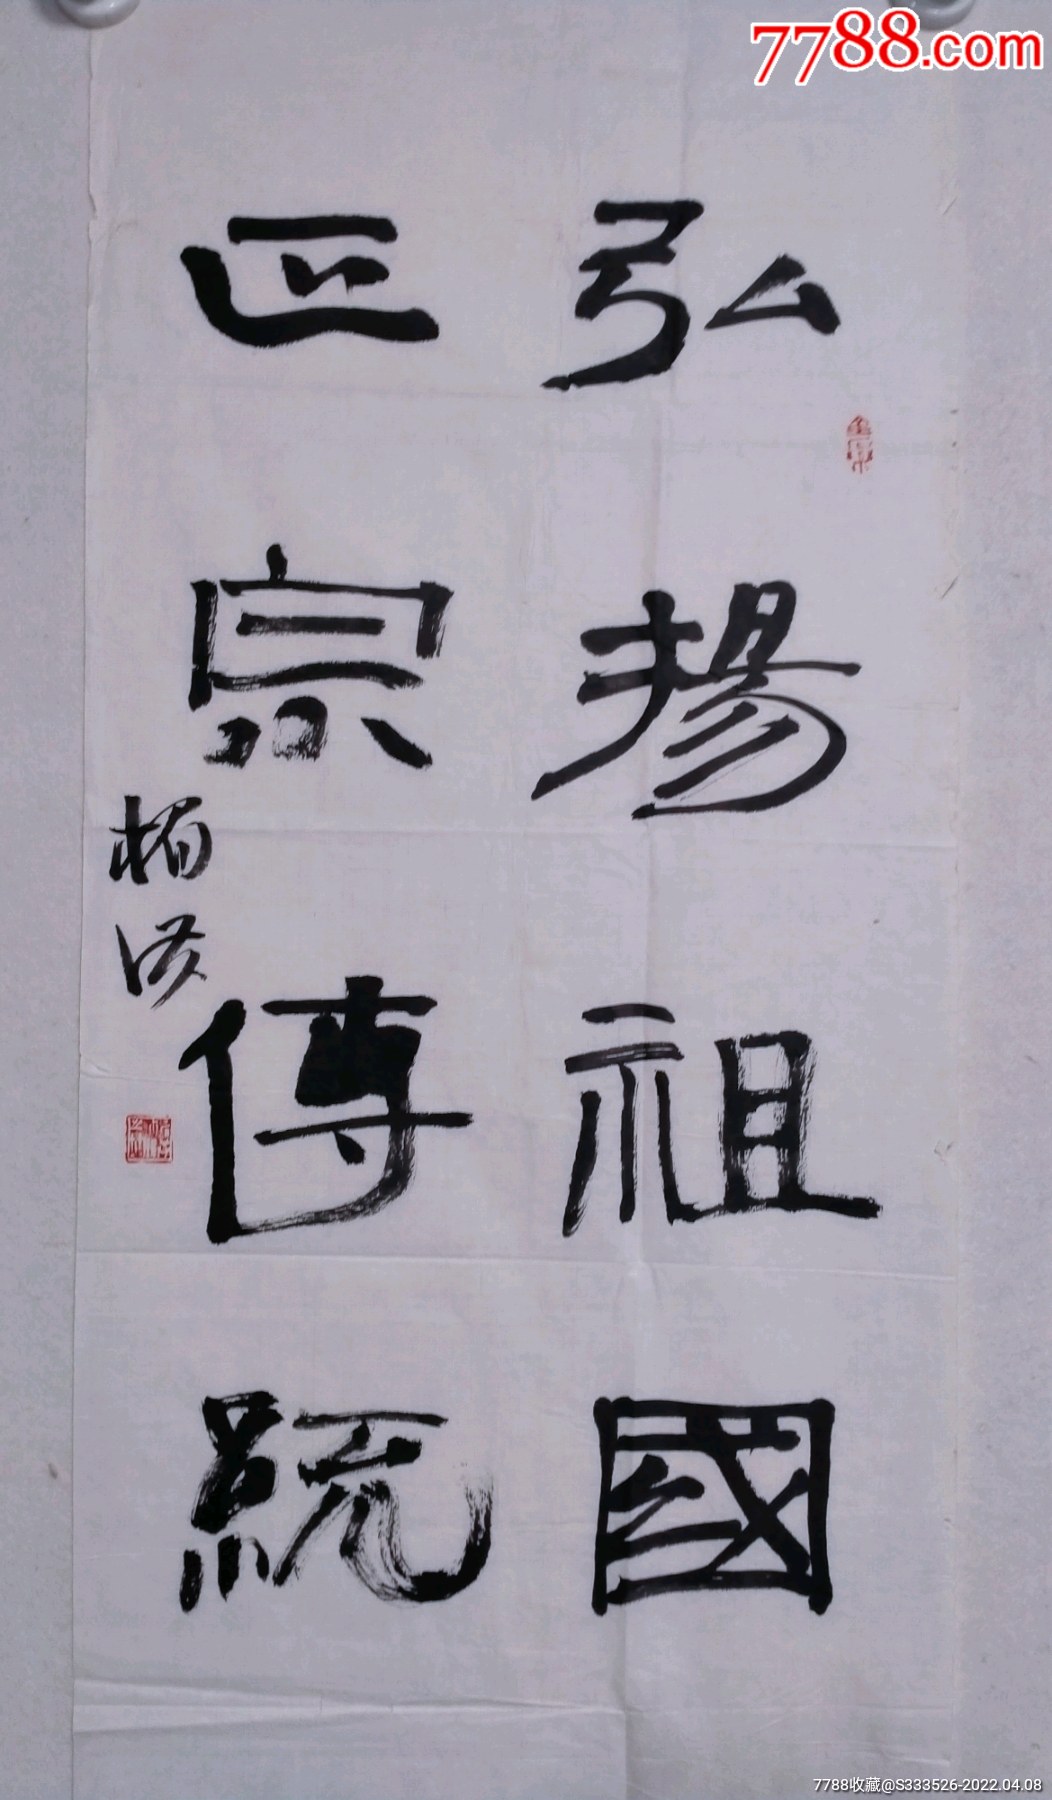 7788.com
弘揚祖國
正宗傳統
7788收藏@S333526-2022.04.08